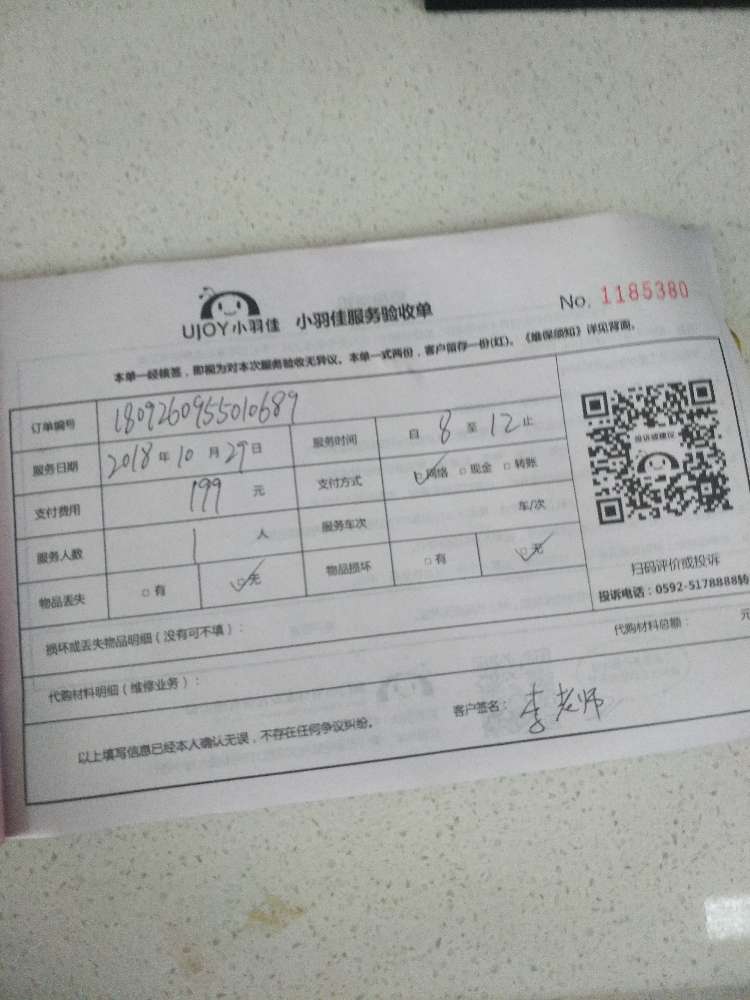 UJOY小羽佳 小羽佳服务验收单 No. 1185380
本单一经核签，即视为对本次服务验收无异议。本单一式两份，客户留存一份(红)。《维保须知》详见背面。
订单编号 1809260955010689
服务日期 2018年10月29日 服务时间 自8至12止
支付费用 199元 支付方式 网络 现金 转账
服务人数 1人 服务车次 车/次
物品丢失 有 无 物品损坏 有 无
投诉或建议
扫码评价或投诉
投诉电话：0592-5178888转
损坏或丢失物品明细（没有可不填）：
代购材料明细（维修业务）： 代购材料总额： 元
以上填写信息已经本人确认无误，不存在任何争议纠纷。 客户签名：李老师